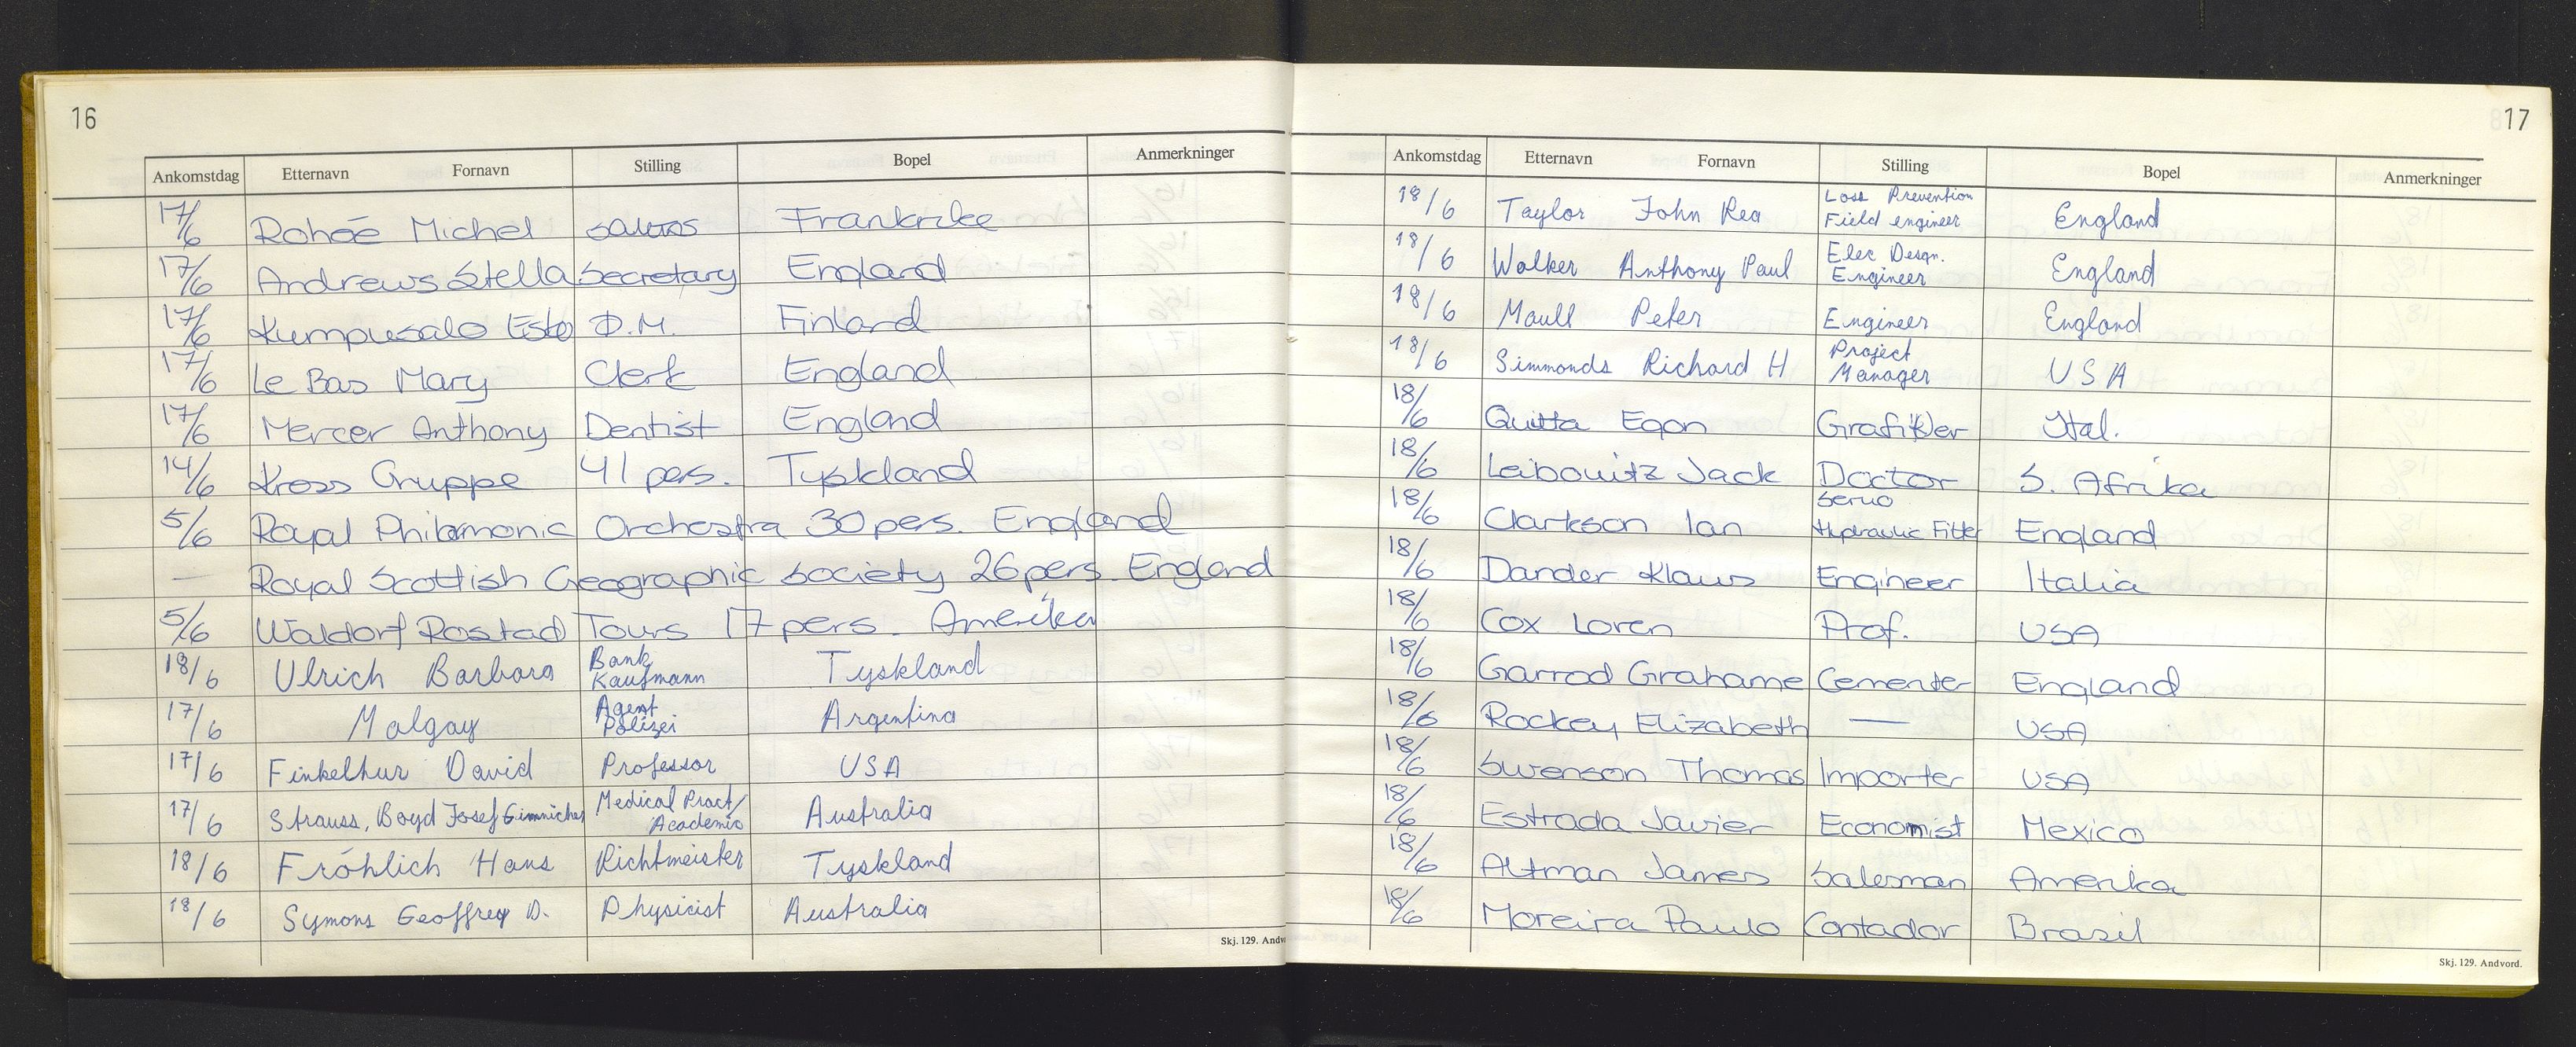 16
Ankomstdag Etternavn Fornavn Stilling Bopel Anmerkninger
17/6 Rohée Michel Frankrike
17/6 Andrews Stella Secretary England
17/6 Kumpusalo Esko D.M. Finland
17/6 Le Bas Mary Clerk England
17/6 Mercer Anthony Dentist England
14/6 Kross Gruppe 41 pers. Tyskland
5/6 Royal Philarmonic Orchestra 30 pers. England
— Royal Scottish Geographic Society 26 pers. England
5/6 Waldorf Rostad Tours 17 pers. Amerika
18/6 Ulrich Barbara Bank Kaufmann Tyskland
17/6 Malgay Agent Polizei Argentina
17/6 Finkelhur David Professor USA
17/6 Strauss, Boyd Josef Medical Pract/ Academic Australia
18/6 Fröhlich Hans Richtmeister Tyskland
18/6 Symons Geoffrey D. Physicist Australia
Skj. 129. Andv
17
Ankomstdag Etternavn Fornavn Stilling Bopel Anmerkninger
18/6 Taylor John Rea Loss Prevention Field engineer England
18/6 Walker Anthony Paul Elec Desgn. Engineer England
18/6 Maull Peter Engineer England
18/6 Simmonds Richard H Project Manager USA
18/6 Quitta Egon Grafiker Ital.
18/6 Leibowitz Jack Doctor S. Afrika
18/6 Clarkson Ian Servo Hydraulic Fitter England
18/6 Dander Klaus Engineer Italia
18/6 Cox Loren Prof. USA
18/6 Garrod Grahame Cementer England
18/6 Rockey Elizabeth — USA
18/6 Swenson Thomas Importer USA
18/6 Estrada Javier Economist Mexico
18/6 Altman James Salesman Amerika
18/6 Moreira Paulo Contador Brasil
Skj. 129. Andvord.